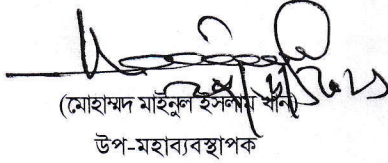 (মোহাম্মদ মাইনুল ইসলাম খান)
উপ-মহাব্যবস্থাপক